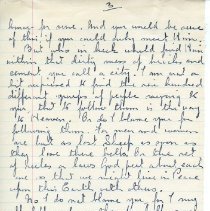 2
honor for sure. And you would be sure
of this if you could only meet Him.
But who in heck would find Him
within that dirty mess of bricks and
cement you call a city. I am not a
bit surprised to find one hundred
different groups of people swearing to
you that to follow them is the way
to Heaven. Do I blame you for
following them, for men and women
are but as lost sheep as soon as
they lose their
of rules or laws about
us so that we might live in Peace
upon this Earth with others.
No I do not blame you for I may